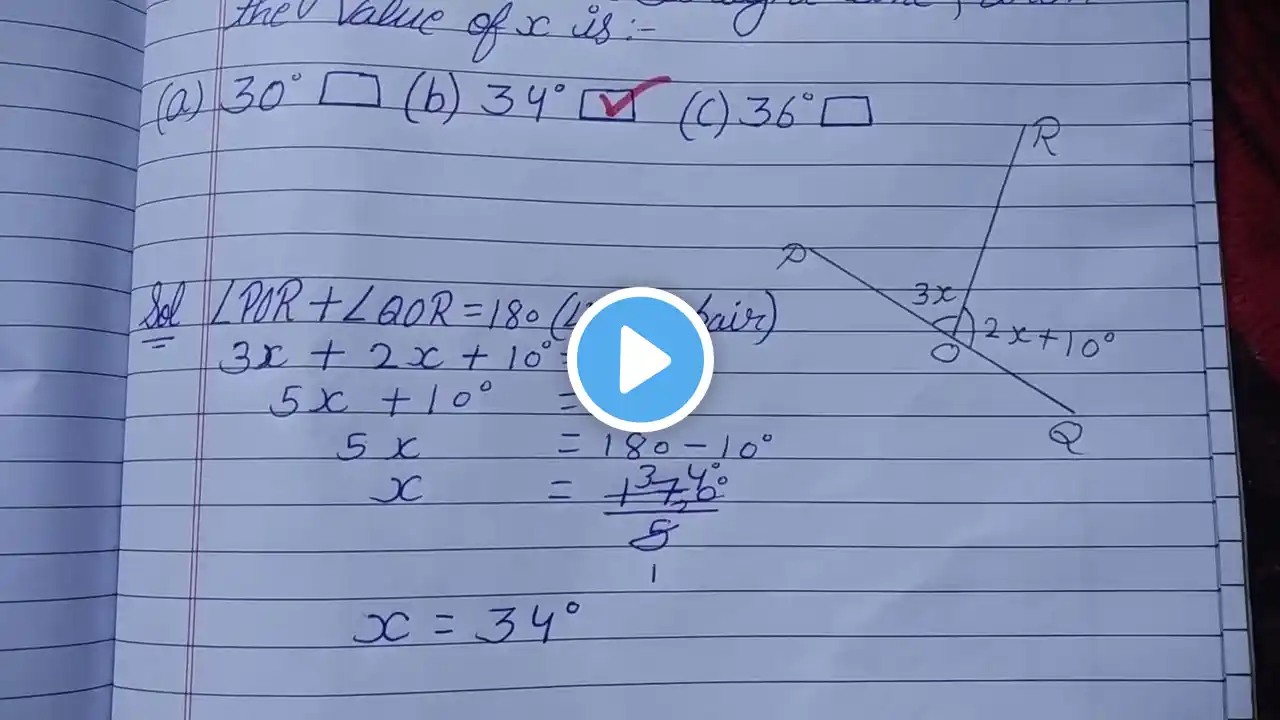 the Value of x is :-
(a) 30° (b) 34° (c) 36°
R
P
3x
2x + 10°
O
Q
Sol ∠POR + ∠QOR = 180 ( pair)
3x + 2x + 10° =
5x + 10° =
5x = 180 - 10°
x = 170°
5
34°
1
x = 34°